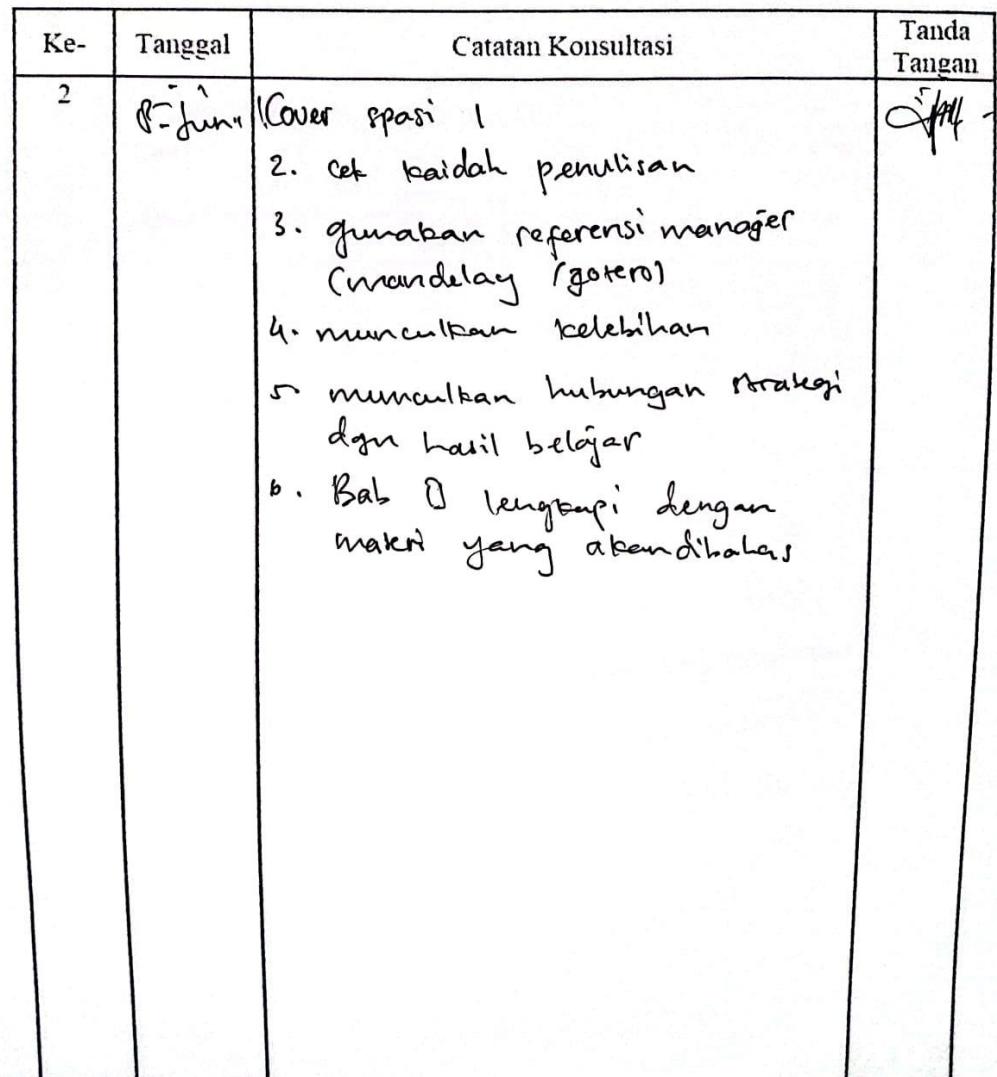 Ke- Tanggal Catatan Konsultasi Tanda Tangan
2 8-Juni 1 Cover spasi 1
2. cek kaidah penulisan
3. gunakan referensi manajer
(mandelay / zotero)
4. munculkan kelebihan
5 munculkan hubungan strategi
dgn hasil belajar
6. Bab II lengkapi dengan
materi yang akan dibahas